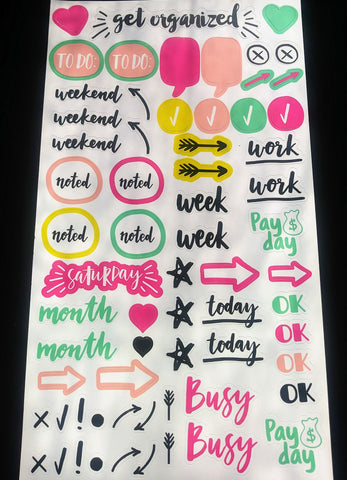 get organized
TO DO: TO DO:
weekend
weekend
weekend
work
work
noted noted
week
week
noted noted
Pay
day
$
SATURDAY
month
month
today
today
OK
OK
OK
OK
Busy
Busy
Pay
day
$
x √ ! •
x √ ! •